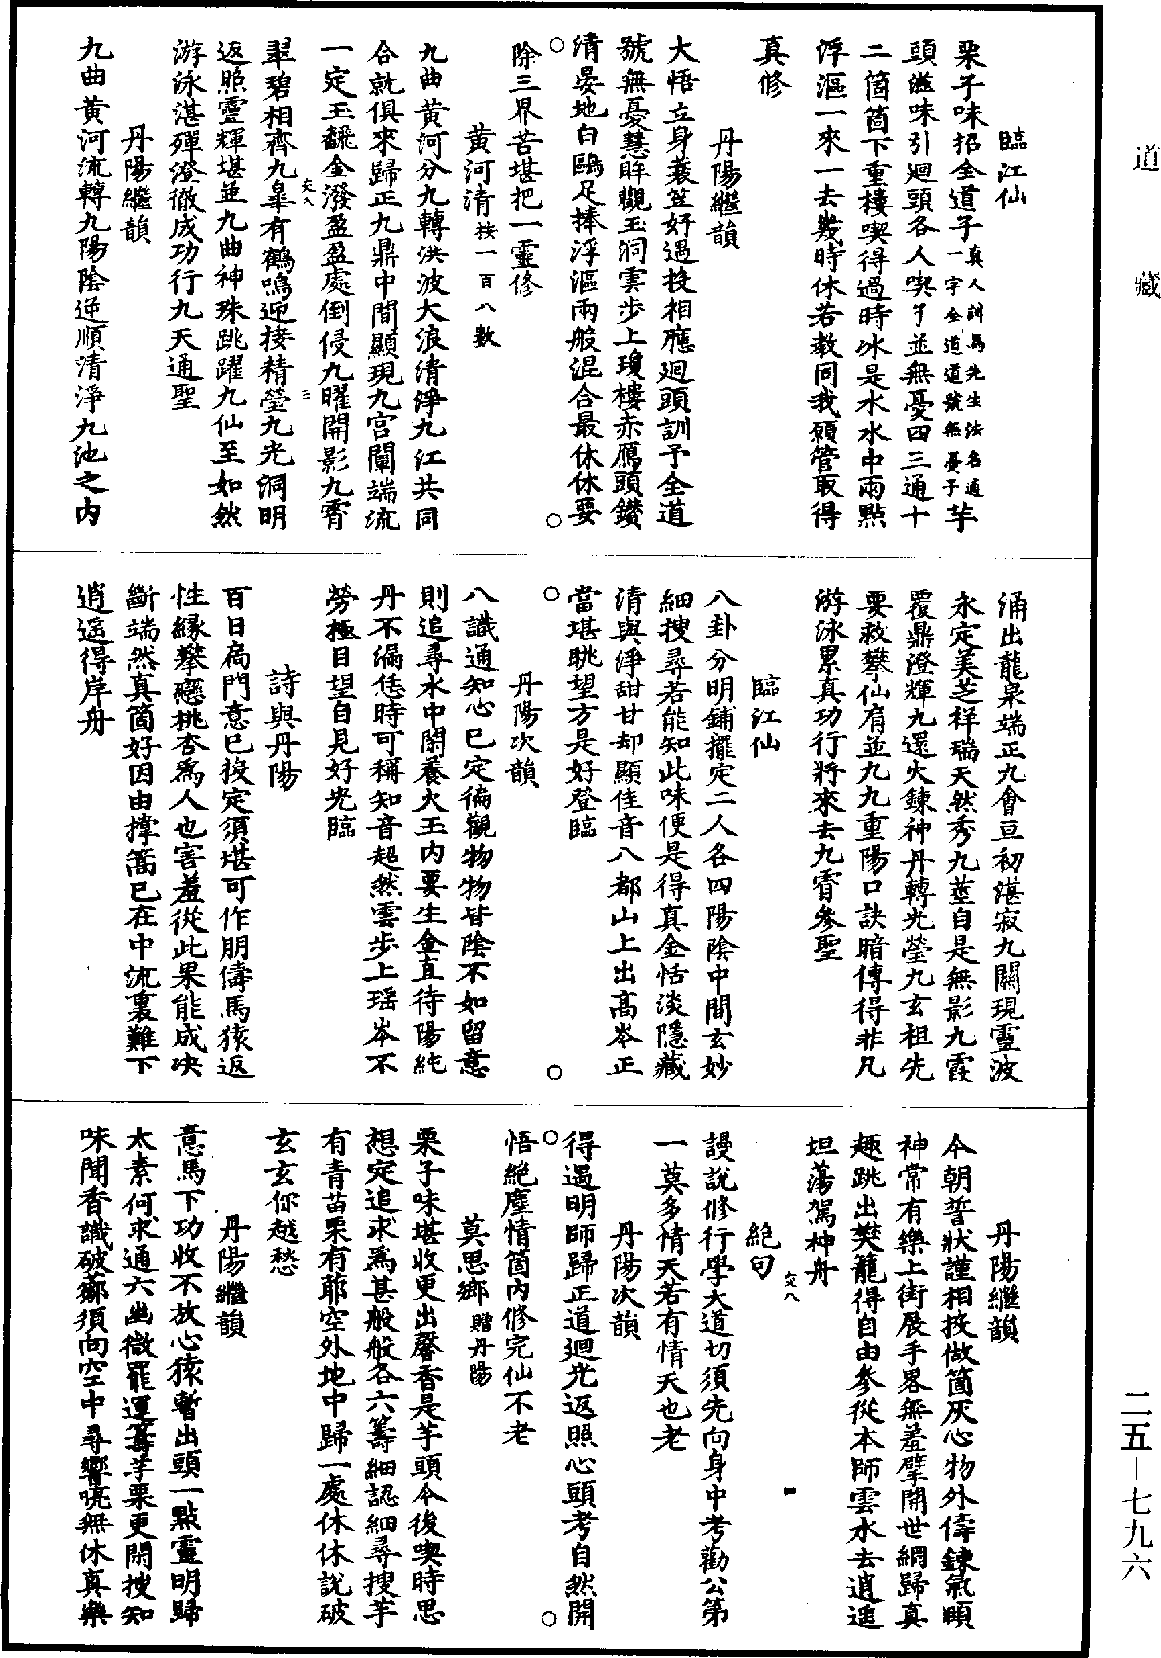 道藏
臨江仙
栗子味招全道子真人訓馬先生法名通一字全道道號無憂子芋
頭滋味引迴頭各人喫了並無憂四三通十
二箇箇下重樓喫得過時冰是水水中兩點
浮漚一來一去幾時休若教同我願管取得
真修
丹陽繼韻
大悟立身蓑笠好遇投相應迴頭訓予全道
號無憂慧眸觀玉洞雲步上瓊樓赤鴈頭鑽
清晏地白鷗足捧浮漚兩般混合最休休要
除三界苦堪把一靈修
黃河清按一百八數
九曲黃河分九轉洪波大浪清淨九江共同
合就俱來歸正九鼎中間顯現九宮闡端流
一定玉翻金潑盈盈處倒侵九曜開影九霄
翠碧相齊九皐有鶴鳴迎接精瑩九光洞明
返照靈輝堪並九曲神珠跳躍九仙至如然
游泳湛殫澄徹成功行九天通聖
丹陽繼韻
九曲黃河流轉九陽陰逆順清淨九池之内
涌出龍泉端正九會亘初湛寂九關現靈波
永定美芝祥瑞天然秀九莖自是無影九霞
覆鼎澄輝九還火鍊神丹轉光瑩九玄祖先
要救攀仙肩並九九重陽口訣暗傳得非凡
游泳累真功行將來去九霄參聖
臨江仙
八卦分明鋪擺定二人各四陽陰中間玄妙
細搜尋若能知此味便是得真金恬淡隱藏
清與淨甜甘却顯佳音八都山上出高岑正
當堪眺望方是好登臨
丹陽次韻
八識通知心已定徧觀物物皆陰不如留意
則追尋水中閑養火玉内要生金直待陽純
丹不漏恁時可稱知音超然雲步上瑶岑不
勞極目望自見好光臨
詩與丹陽
百日扃門意已投定須堪可作朋儔馬猿返
性緣攀戀桃杏爲人也害羞從此果能成决
斷端然真箇好因由撐篙已在中流裏難下
逍遥得岸舟
丹陽繼韻
今朝誓狀謹相投做箇灰心物外儔鍊氣頤
神常有樂上街展手畧無羞擘開世網歸真
趣跳出樊籠得自由參從本師雲水去逍遥
坦蕩駕神舟
絕句
謾說修行學大道切須先向身中考勸公第
一莫多情天若有情天也老
丹陽次韻
得遇明師歸正道迴光返照心頭考自然開
悟絶塵情箇内修完仙不老
莫思鄉贈丹陽
栗子味堪收更出馨香是芋頭今後喫時思
想定追求爲甚般般各六籌細認細尋搜芋
有青苗栗有蔀空外地中歸一處休休說破
玄玄你越愁
丹陽繼韻
意馬下功收不放心猿暫出頭一點靈明歸
太素何求通六幽微罷運籌芋栗更閑搜知
味聞香識破蔀須向空中尋響喨無休真樂
二五—七九六